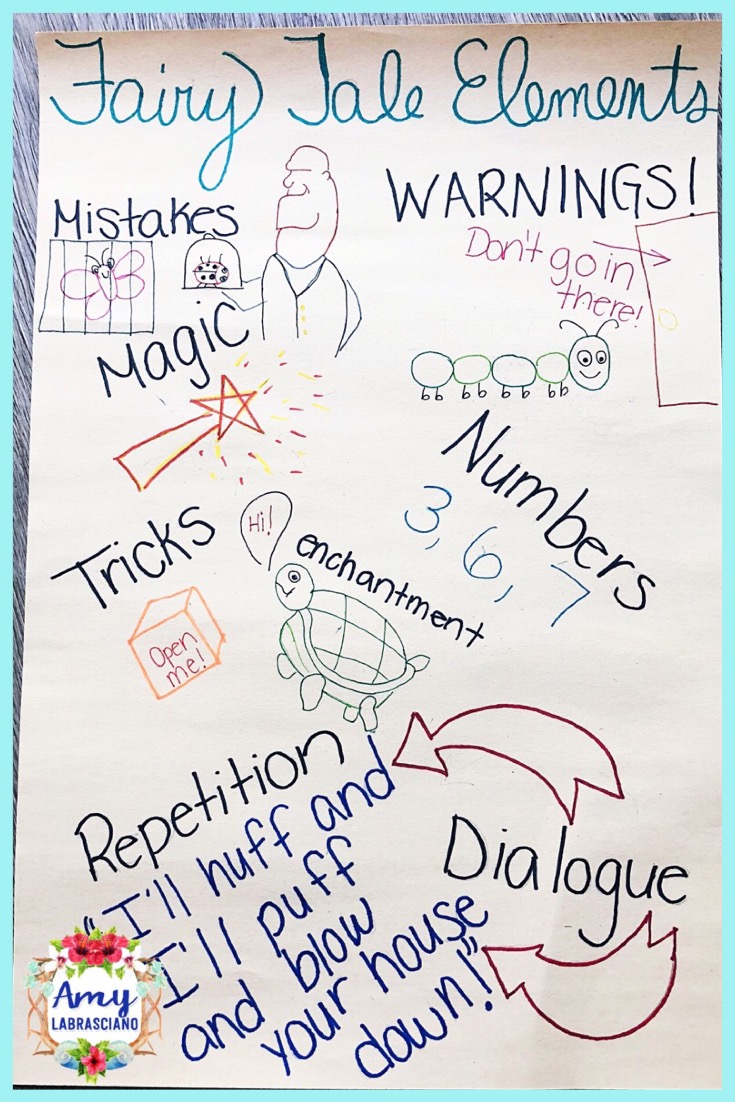 Fairy Tale Elements
Mistakes
WARNINGS!
Don't go in
there!
Magic
Numbers
3, 6, 7
Tricks
Hi!
enchantment
Open
me!
Repetition
"I'll huff and
I'll puff
and blow
your house
down!"
Dialogue
Amy
LABRASCIANO